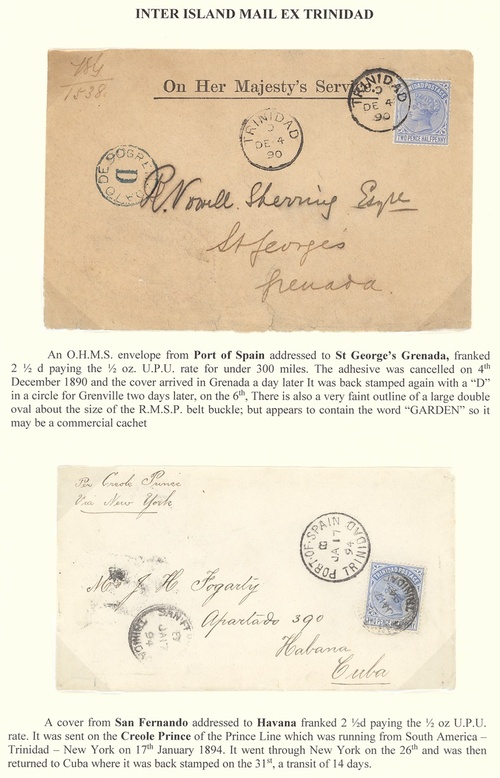 INTER ISLAND MAIL EX TRINIDAD
184
1538
On Her Majesty's Serv
TRINIDAD
D
DE 4
90
TRINIDAD POSTAGE
TWO PENCE HALFPENNY
TRINIDAD
D
DE 4
90
D
R. Vowell Sherring Esqre
St George's
Grenada.
An O.H.M.S. envelope from Port of Spain addressed to St George's Grenada, franked
2 ½ d paying the ½ oz. U.P.U. rate for under 300 miles. The adhesive was cancelled on 4th
December 1890 and the cover arrived in Grenada a day later It was back stamped again with a “D”
in a circle for Grenville two days later, on the 6th, There is also a very faint outline of a large double
oval about the size of the R.M.S.P. belt buckle; but appears to contain the word “GARDEN” so it
may be a commercial cachet
Per Creole Prince
Via New York
PORT-OF-SPAIN TRINIDAD
8
JA 17
94
TRINIDAD POSTAGE
Mr J. H. Fogarty
Apartado 390
Habana
Cuba
SAN F
TRINIDAD
JA 17
94
A cover from San Fernando addressed to Havana franked 2 ½d paying the ½ oz U.P.U.
rate. It was sent on the Creole Prince of the Prince Line which was running from South America –
Trinidad – New York on 17th January 1894. It went through New York on the 26th and was then
returned to Cuba where it was back stamped on the 31st, a transit of 14 days.